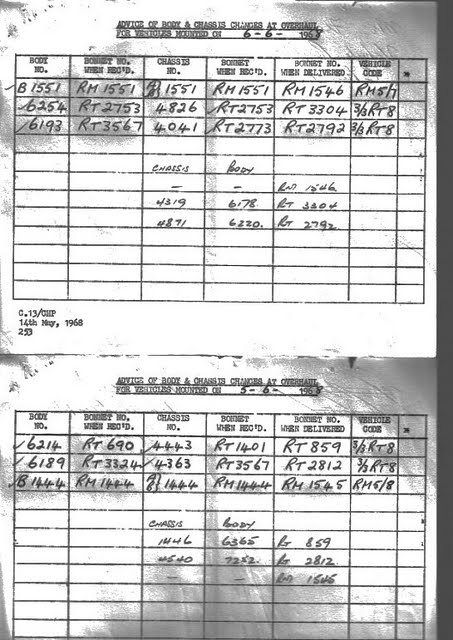 ADVICE OF BODY & CHASSIS CHANGES AT OVERHAUL
FOR VEHICLES MOUNTED ON 6-6- 1968
BODY NO. BONNET NO. WHEN REC'D. CHASSIS NO. BONNET WHEN REC'D. BONNET NO. WHEN DELIVERED VEHICLE CODE
B1551 RM1551 1551 RM1551 RM1546 RM5/7
6254 RT2753 4826 RT2753 RT3304 3/3RT8
6193 RT3567 4041 RT2773 RT2792 3/3RT8
CHASSIS BODY
— — RM 1546
4319 6178 RT 3304
4871 6220. RT 2792
C.13/CHP
14th May, 1968
253
ADVICE OF BODY & CHASSIS CHANGES AT OVERHAUL
FOR VEHICLES MOUNTED ON 5-6- 1968
BODY NO. BONNET NO. WHEN REC'D. CHASSIS NO. BONNET WHEN REC'D. BONNET NO. WHEN DELIVERED VEHICLE CODE
6214 RT690 4443 RT1401 RT859 3/3RT8
6189 RT3324 4363 RT3567 RT2812 3/3RT8
B1444 RM1444 1444 RM1444 RM1545 RM5/8
CHASSIS BODY
1446 6365 RT 859
4540 7252 RT 2812
— — RM 1545